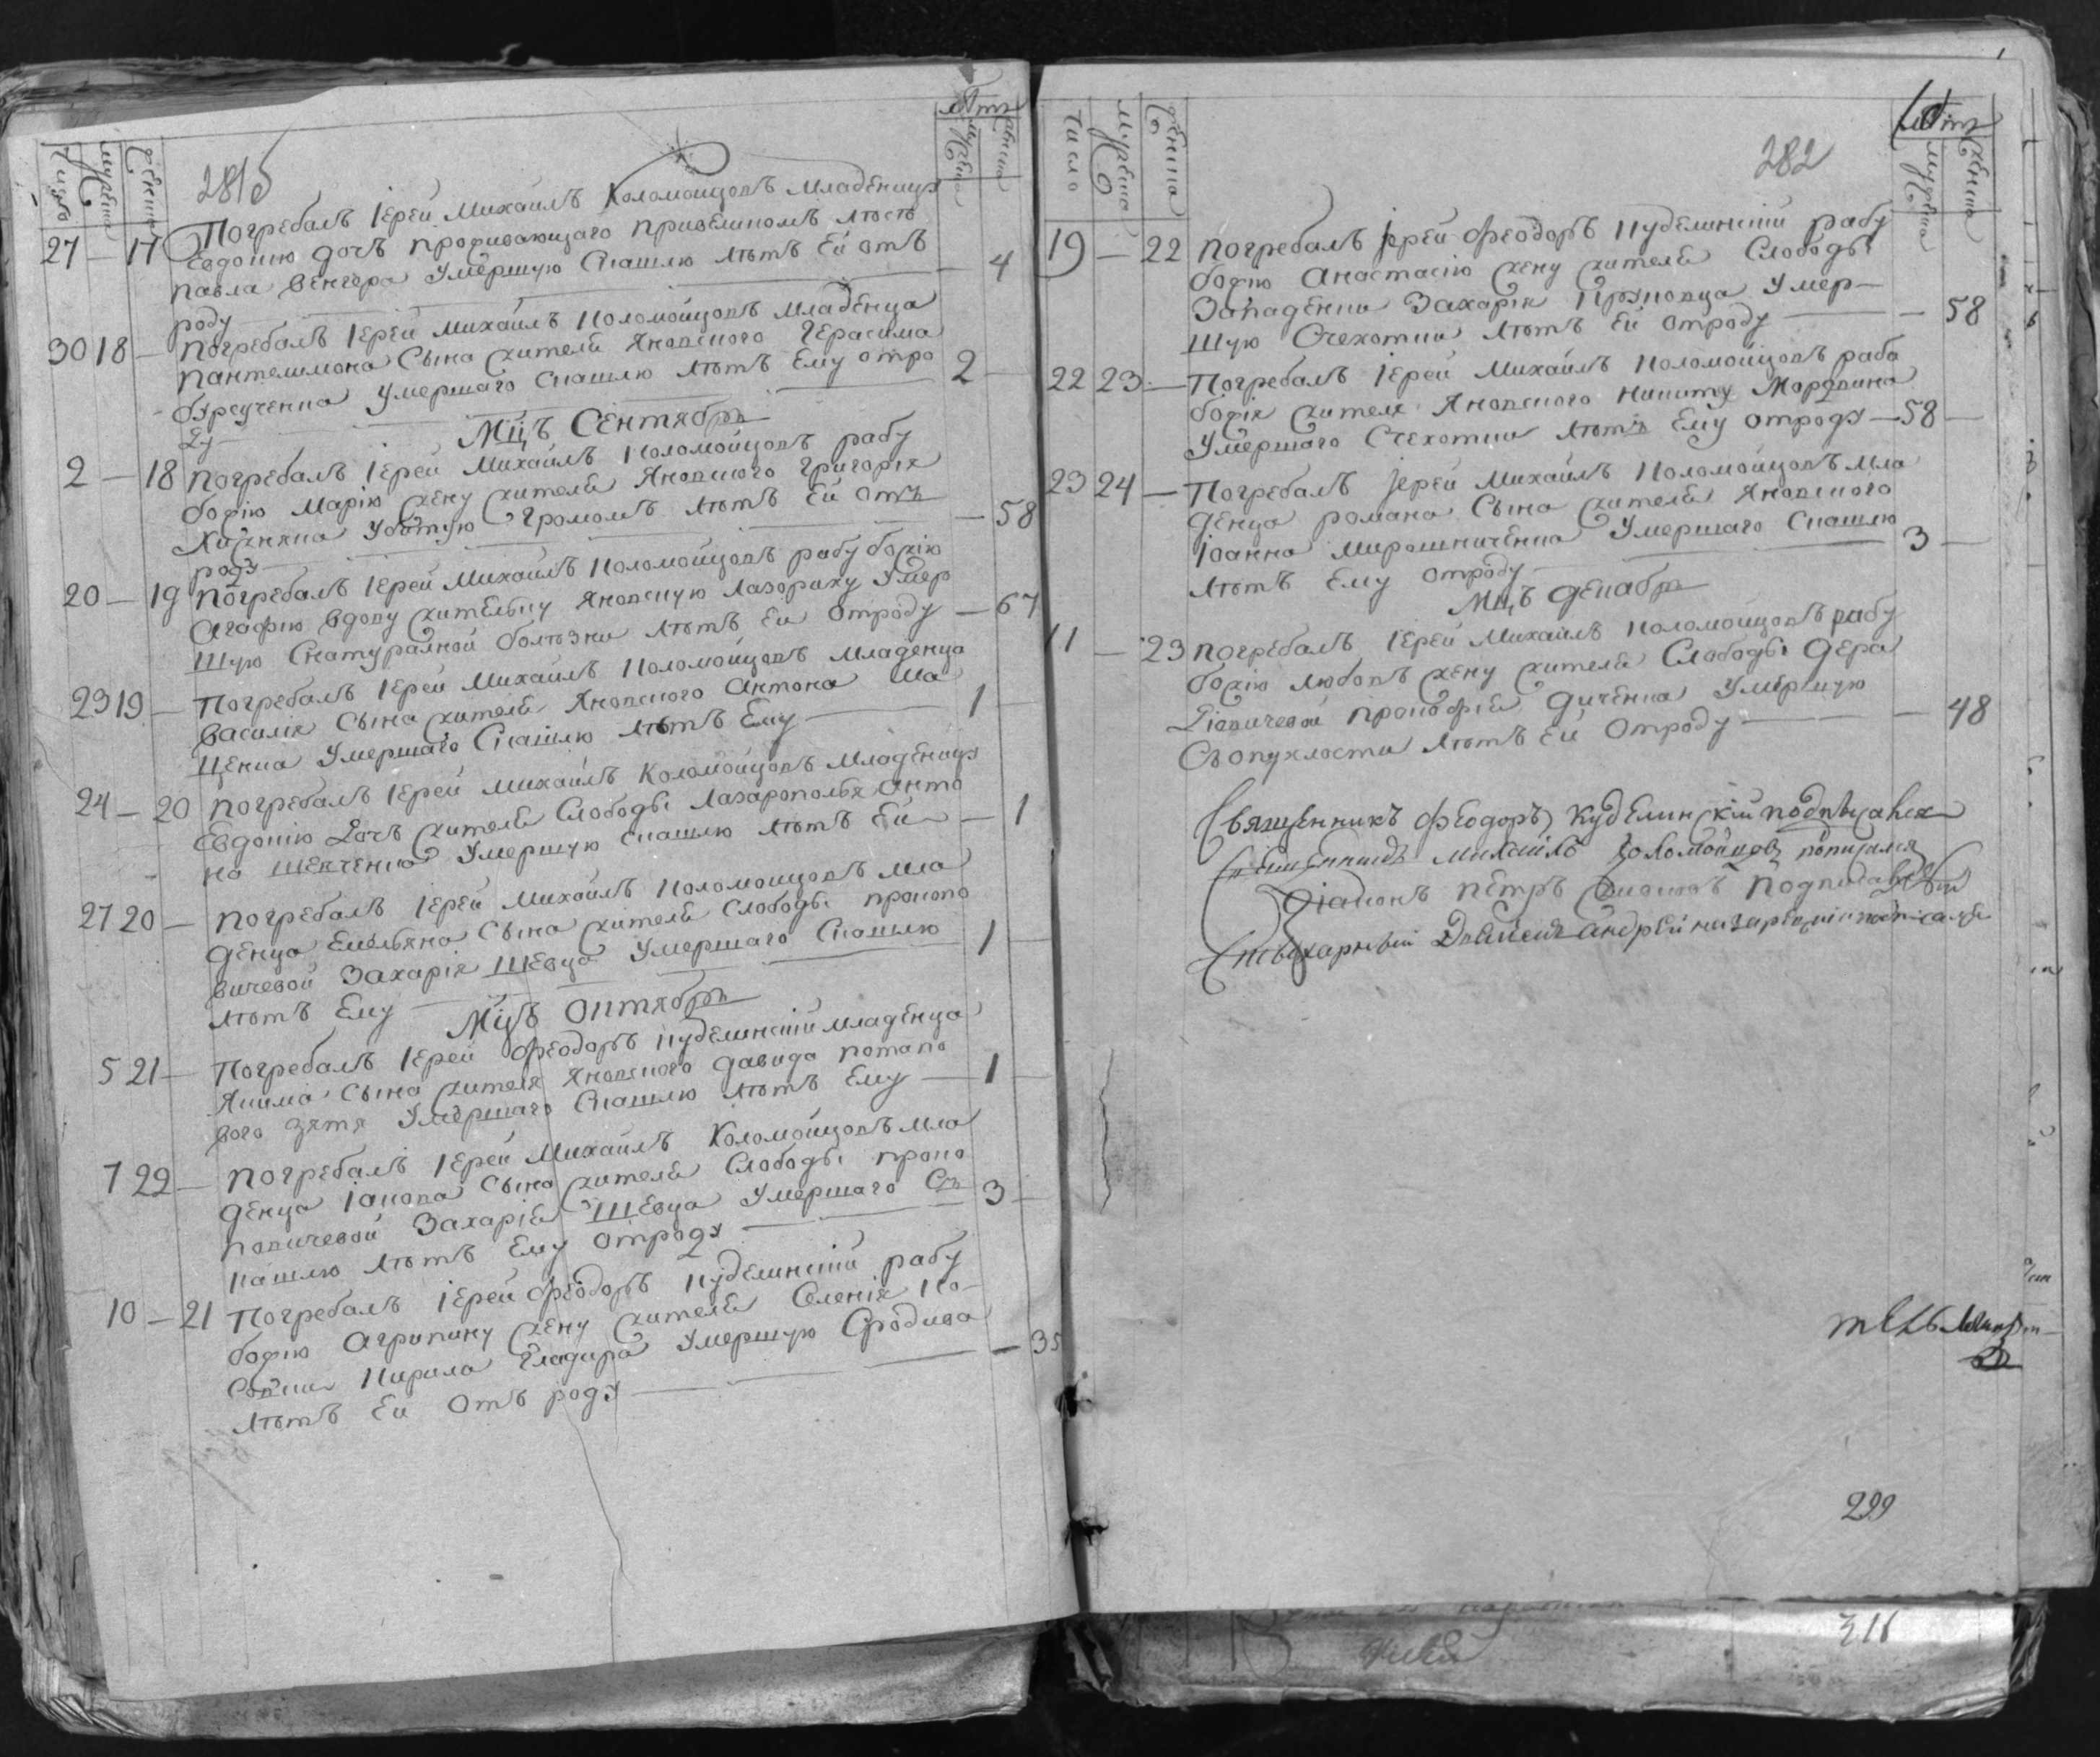 281б
Число мужеска женска Лѣтъ мужеска женска
27 — 17 Погребалъ Іерей Михаилъ Коломойцовъ младеницу
Евдокию дочъ проживающаго при
Павла Венгера умершую Скашлю лѣтъ Ей отъ
роду — 4
30 18 — Погребалъ Іерей Михаилъ Коломойцовъ младенца
Пантелимона Сына жителя Яновского Герасима
умершаго Скашлю лѣтъ Ему отро
ду 2 —
Мцъ Сентябрь
2 — 18 Погребалъ Іерей Михаилъ Коломойцовъ рабу
божію Марію жену жителя Яновского Григорія
Хижняка Убытую Громомъ лѣтъ Ей отъ
роду — 58
20 — 19 Погребалъ Іерей Михаилъ Коломойцовъ рабу божію
Агафію вдову жителку Яновскую Лазориху Умер
шую Снатуралной болѣзни лѣтъ Ей отроду — 67
23 19 — Погребалъ Іерей Михаилъ Коломойцовъ младенца
Василія Сына жителя Яновского Антона Ма
ценка Умершаго Скашлю лѣтъ Ему 1 —
24 — 20 Погребалъ Іерей Михаилъ Коломойцовъ младеницу
Евдокію дочъ жителя Слободы Лазарополья Анто
на Шевченка Умершую скашлю лѣтъ Ей — 1
27 20 — Погребалъ Іерей Михаилъ Коломойцовъ мла
денца Емельяна Сына жителя Слободы прокопо
вичевой Захарія Шевца Умершаго Скашлю
лѣтъ Ему 1 —
Мцъ Октябрь
5 21 — Погребалъ Іерей Феодоръ Куделинскій младенца
Якима Сына жителя Яновского Давида потапо
вого зятя Умершаго Скашлю лѣтъ Ему — 1 —
7 22 — Погребалъ Іерей Михаилъ Коломойцовъ мла
денца Іакова Сына жителя Слободы проко
повичевой Захарія Шевца Умершаго Съ
кашлю лѣтъ Ему отроду 3 —
10 — 21 Погребалъ Іерей Феодоръ Куделинскій рабу
божію Агрипину жену жителя Селенія Ко-
Кирила Умершую Сродива
лѣтъ Ей Отъ роду — 35
282
Число мужеска женска Лѣтъ мужеска женска
19 — 22 Погребалъ Іерей Феодоръ Куделинскій рабу
божію Анастасію жену жителя Слободы
Захарія Умер-
шую Счехотки лѣтъ Ей отроду — 58
22 23 — Погребалъ Іерей Михаилъ Коломойцовъ раба
божія жителя Яновского Никиту Мордвина
Умершаго Счехотки лѣтъ Ему отроду — 58 —
23 24 — Погребалъ Іерей Михаилъ Коломойцовъ мла
денца романа Сына жителя Яновского
Іоанна мирошниченка Умершаго Скашлю
лѣтъ Ему отроду 3 —
Мцъ Декабрь
11 — 23 Погребалъ Іерей Михаилъ Коломойцовъ рабу
божію любовъ жену жителя Слободы Дера
Прокофія Диченка Умершую
Съопухлости лѣтъ Ей Отроду — 48
Священникъ Феодоръ Куделинскій подписался
Священникъ Михаилъ Коломойцовъ
Діаконъ Петръ подписался
Андрей
299
311